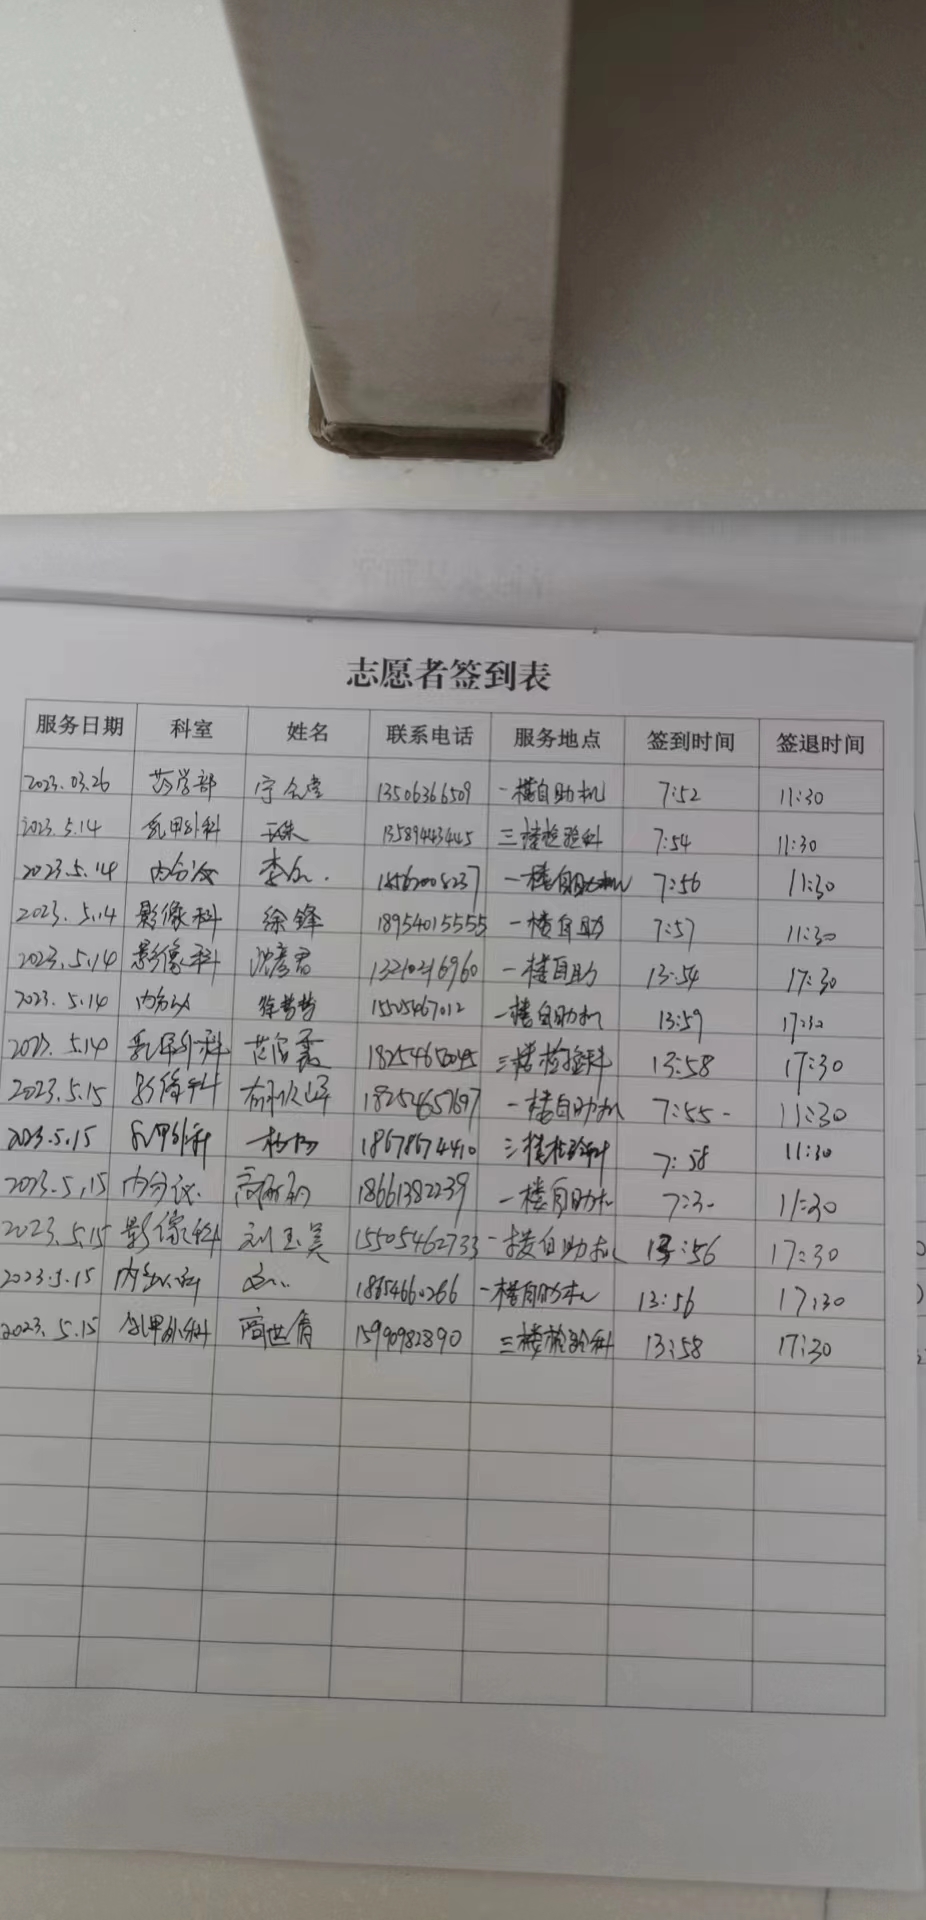 志愿者签到表
服务日期 科室 姓名 联系电话 服务地点 签到时间 签退时间
2023.03.26 药学部 13506366509 一楼自助机 7:52 11:30
2023.5.14 乳甲外科 13589443445 三楼检验科 7:54 11:30
2023.5.14 内分泌 一楼自助机 7:56 11:30
2023.5.14 影像科 徐锋 18954015555 一楼自助 7:57 11:30
2023.5.14 影像科 沈彦君 一楼自助 13:54 17:30
2023.5.14 内分泌 徐哲哲 15505467012 一楼自助机 13:59 17:30
2023.5.14 乳甲外科 三楼检验科 13:58 17:30
2023.5.15 影像科 18254657697 一楼自助机 7:55 11:30
2023.5.15 乳甲外科 18678674410 三楼检验科 7:58 11:30
2023.5.15 内分泌 18661382239 一楼自助机 7:30 11:30
2023.5.15 影像科 刘玉美 15505462733 一楼自助机 13:56 17:30
2023.5.15 18654660266 一楼自助机 13:56 17:30
2023.5.15 乳甲外科 商世倩 15990982890 三楼检验科 13:58 17:30